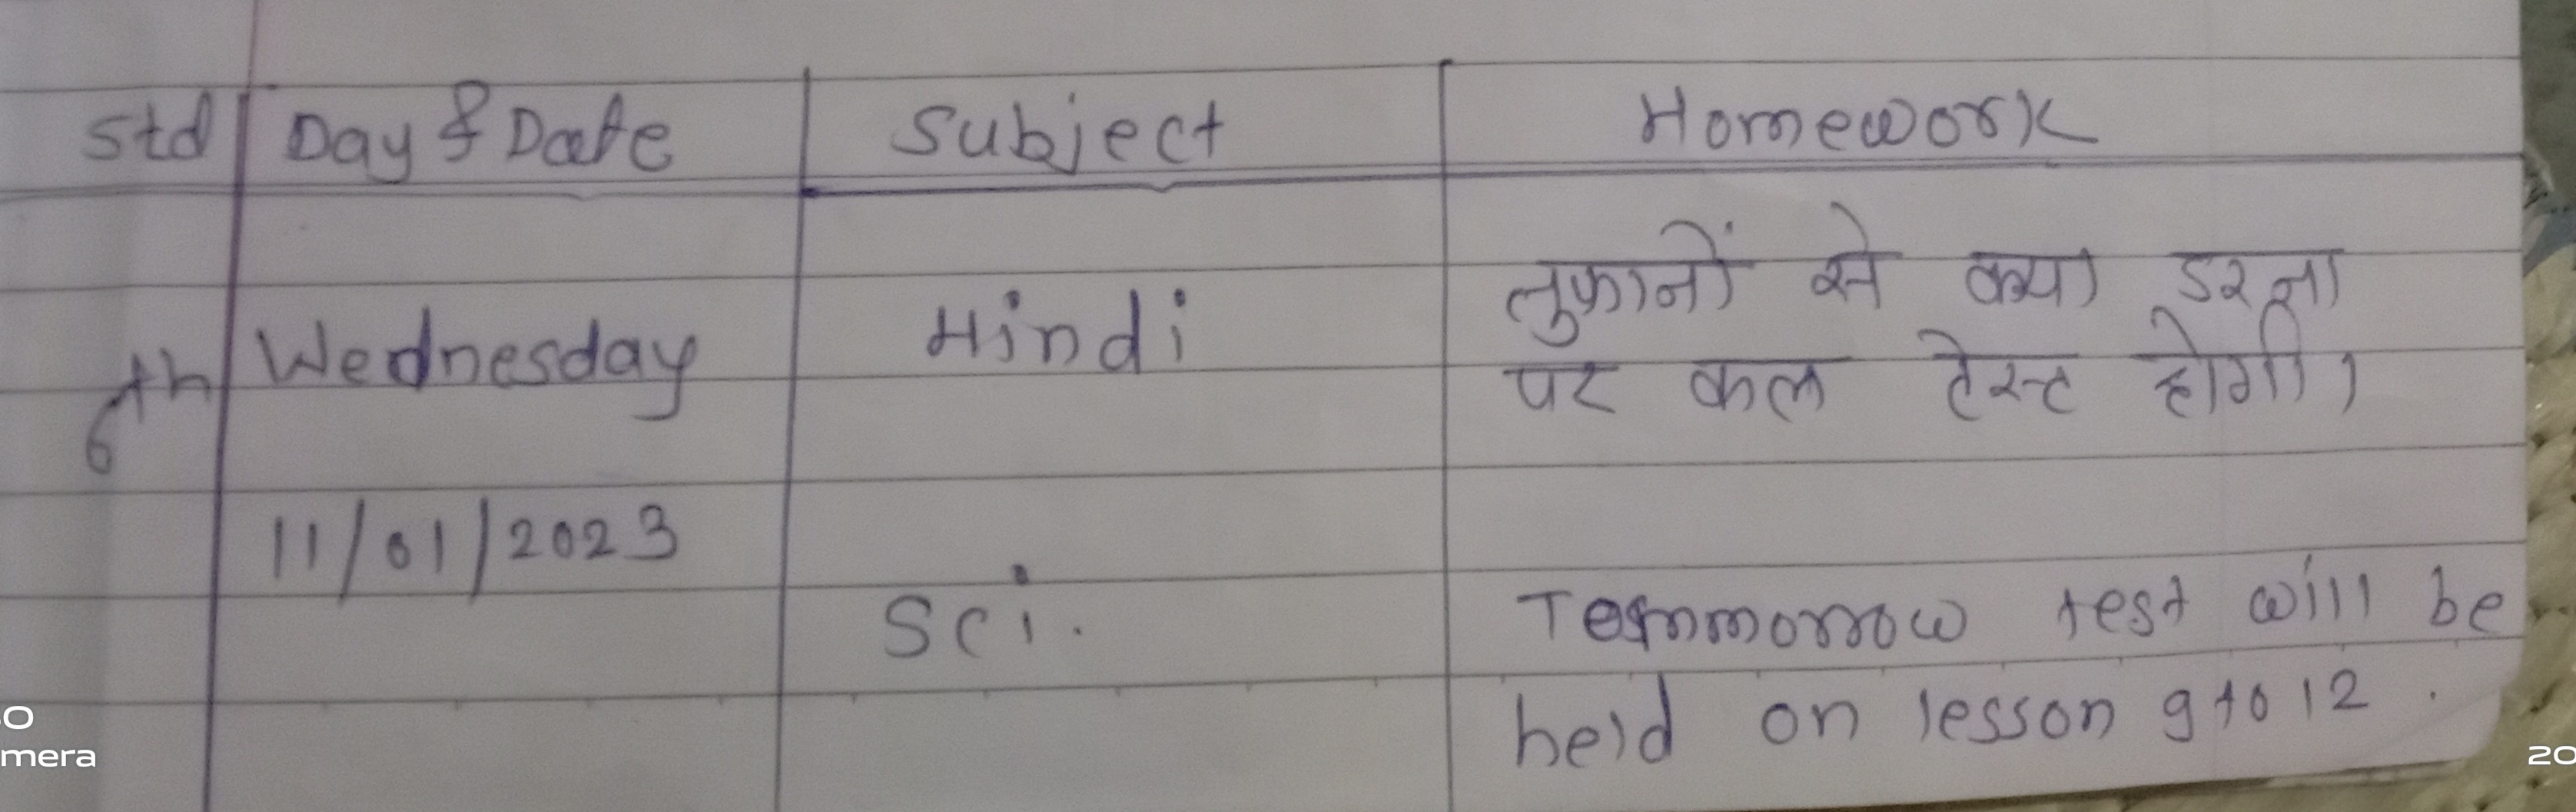 Std Day & Date Subject Homework
तुफानों से क्या डरना
6th Wednesday Hindi
पर कल टेस्ट होगी।
11/01/2023
Sci. Tommorrow test will be
held on lesson 9 to 12.
mera
20